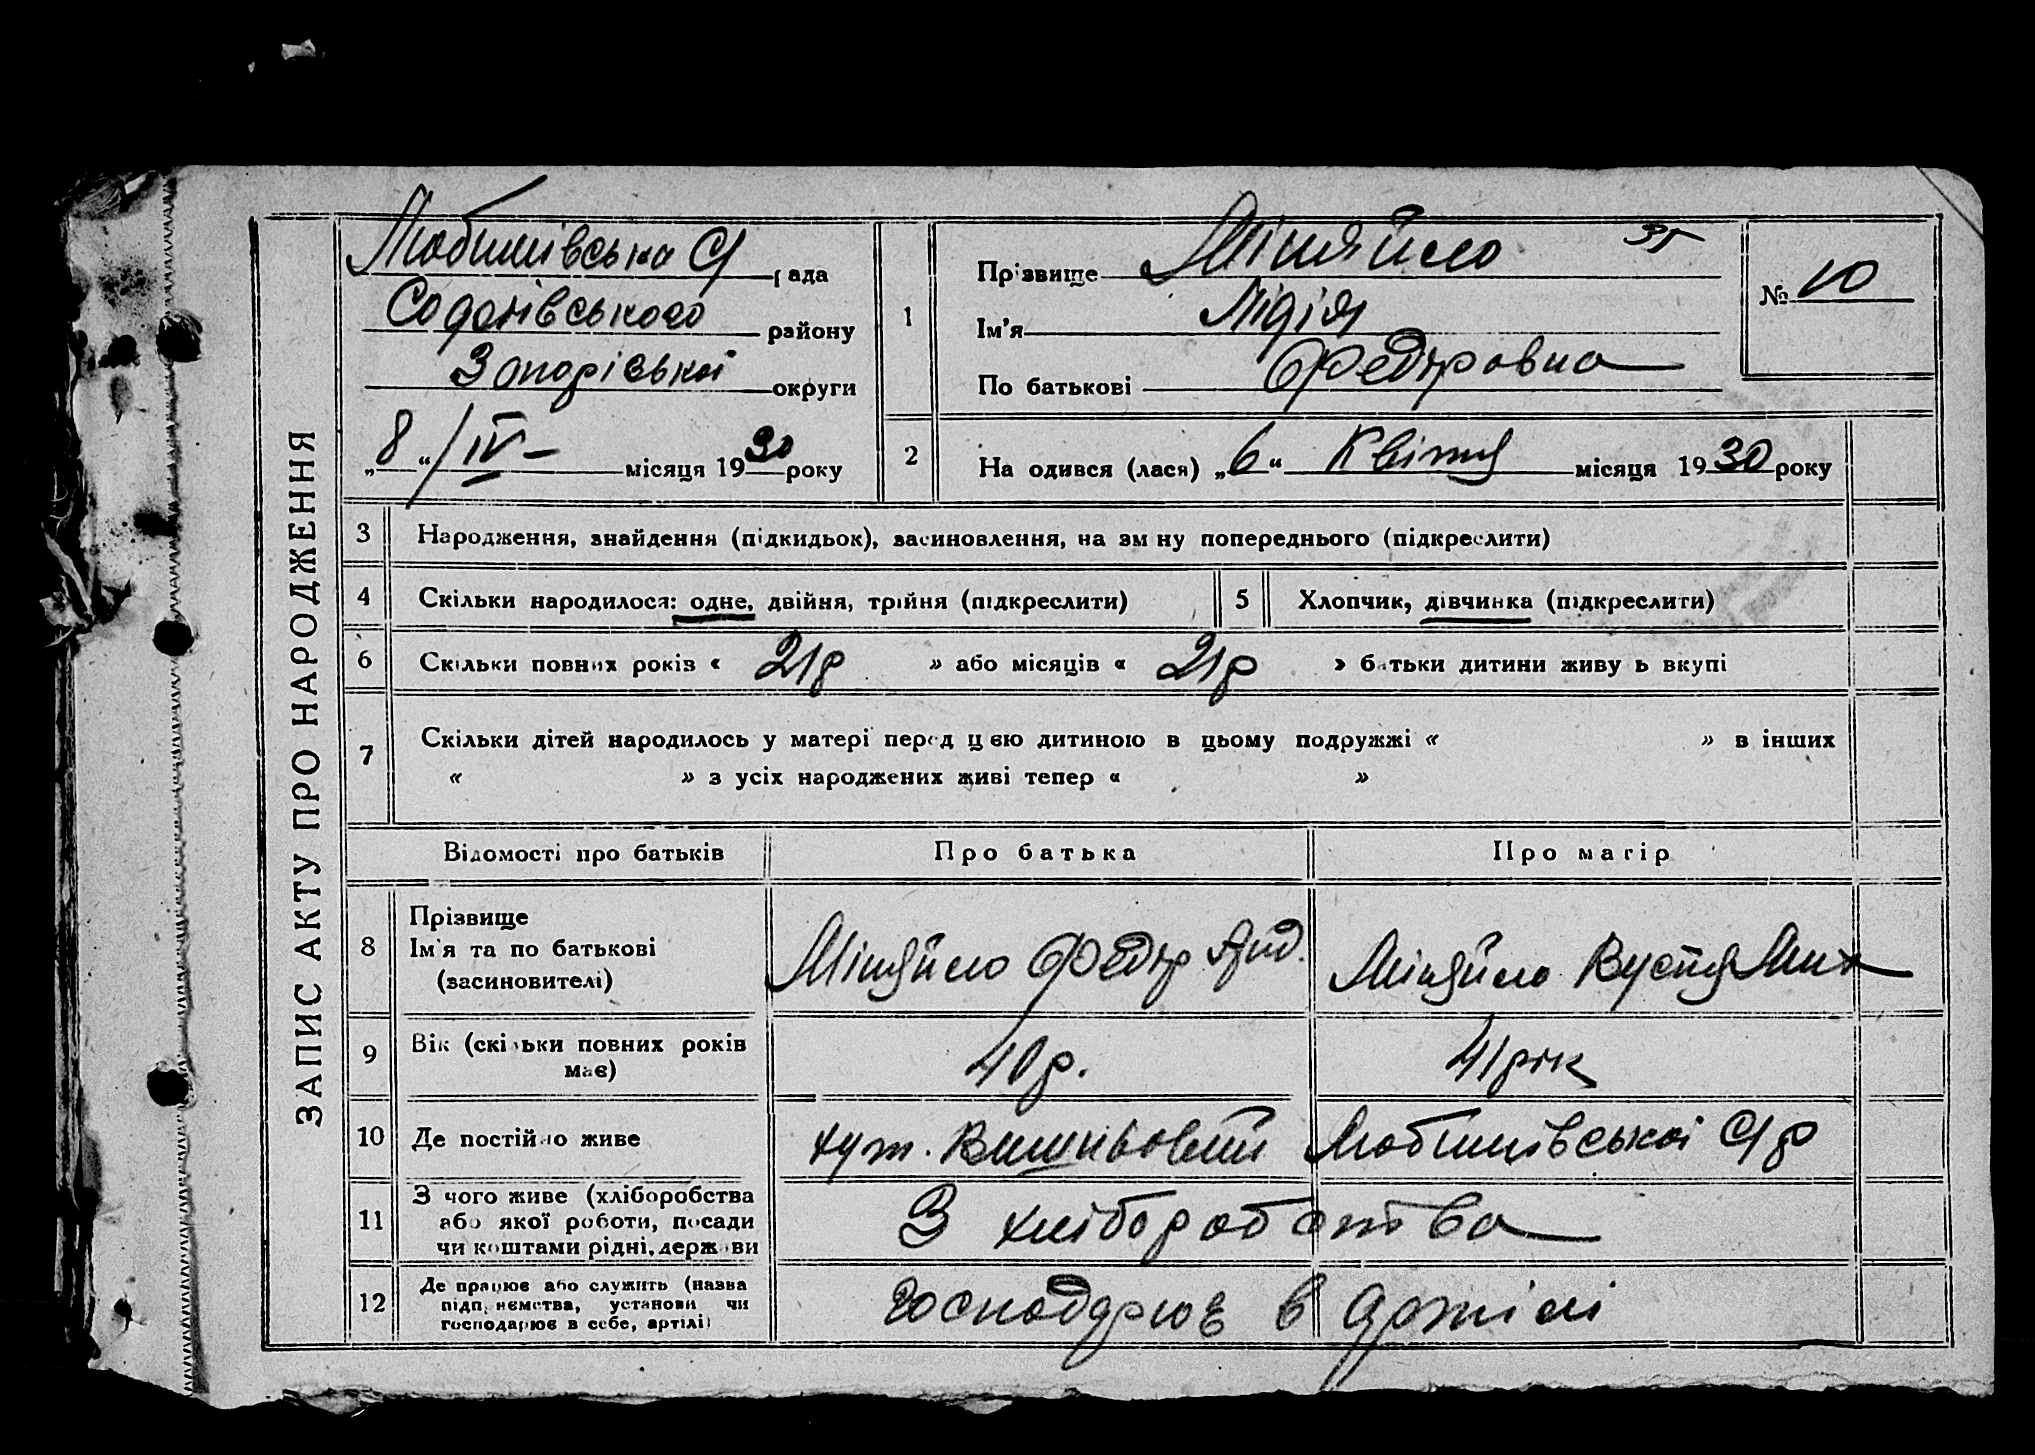 ЗАПИС АКТУ ПРО НАРОДЖЕННЯ
Любимівська С/ рада
Софіївського району
Запорізької округи
„8“ / IV – місяця 1930 року
1
Прізвище Міняйло
Ім'я Лідія
По батькові Федоровна
№ 10
2
На одився (лася) „6“ Квітня місяця 1930 року
3 Народження, знайдення (підкидьок), засиновлення, на зм ну попереднього (підкреслити)
4 Скільки народилося: одне, двійня, трійня (підкреслити)
5 Хлопчик, дівчинка (підкреслити)
6 Скільки повних років « 21 р » або місяців « 21 р » батьки дитини живу ь вкупі
7 Скільки дітей народилось у матері перед цею дитиною в цьому подружжі « » в інших
« » з усіх народжених живі тепер « »
Відомості про батьків Про батька Про матір
8 Прізвище
Ім'я та по батькові
(засиновителі)
Міняйло Федір Анд.
Міняйло Вустя Мих
9 Вік (скільки повних років
має)
40 р.
41 рік
10 Де постійно живе хут. Вишньовий Любимівської С/р
11 З чого живе (хліборобства
або якої роботи, посади
чи коштами рідні, держави
З хліборобства
12 Де працює або служить (назва
підприємства, установи чи
господарює в себе, артілі)
Господарює в артілі